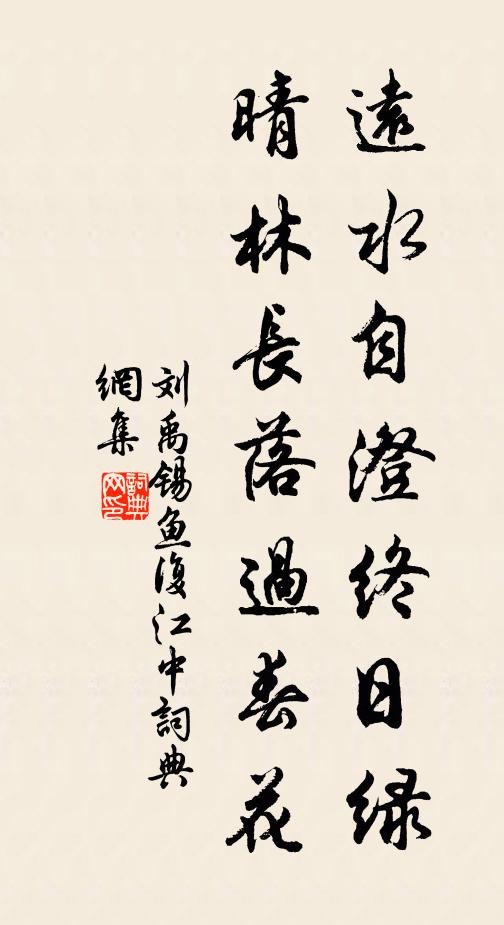 遠水自澄終日緑
晴林長落過春花
刘禹锡鱼復江中詞典
網集
詞典
网印